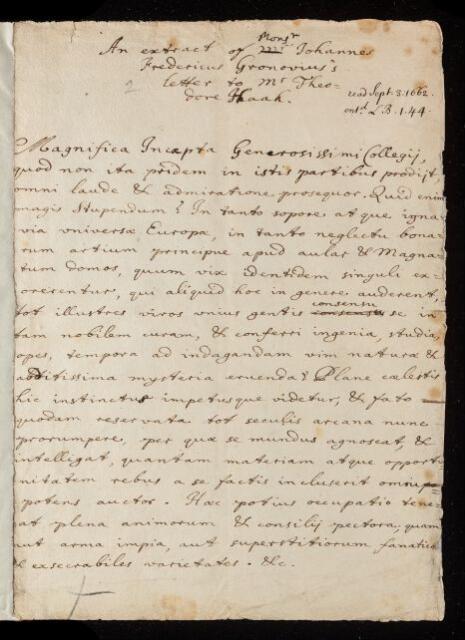 An extract of Monsr Johannes
Fredericus Gronovius's
letter to Mr Theo-
dore Haak.
2
read Sept. 3. 1662.
entd L.B. 1.44.
Magnifica Incepta Generosissimi Collegij,
quod non ita pridem in istis partibus prodijt,
omni laude & admiratione prosequor. Quid enim
magis stupendum? In tanto sopore atque igna
via universæ Europæ, in tanto neglectu bona-
rum artium principue apud aulas & Magna
tum domos, quum vix identidem singuli ex-
orerentur, qui aliquid hoc in genere auderent,
tot illustres viros unius gentis consensu se in
tam nobilem curam, & conferri ingenia, studia,
opes, tempora ad indagandam vim naturæ &
abditissima mysteria eruenda? Plane cælestis
hic instinctus impetusque videtur, & fato
quodam reservata tot seculis arcana nunc
prorumpere, per quæ se mundus agnoscat, &
intelligat, quantam materiam atque opportu
nitatem rebus a se factis incluserit omni-
potens auctor. Hæc potius occupatio tene-
at plena animorum & consilij pectora, quam
aut arma impia, aut superstitiorum fanatica
& execrabiles varietates. &c.